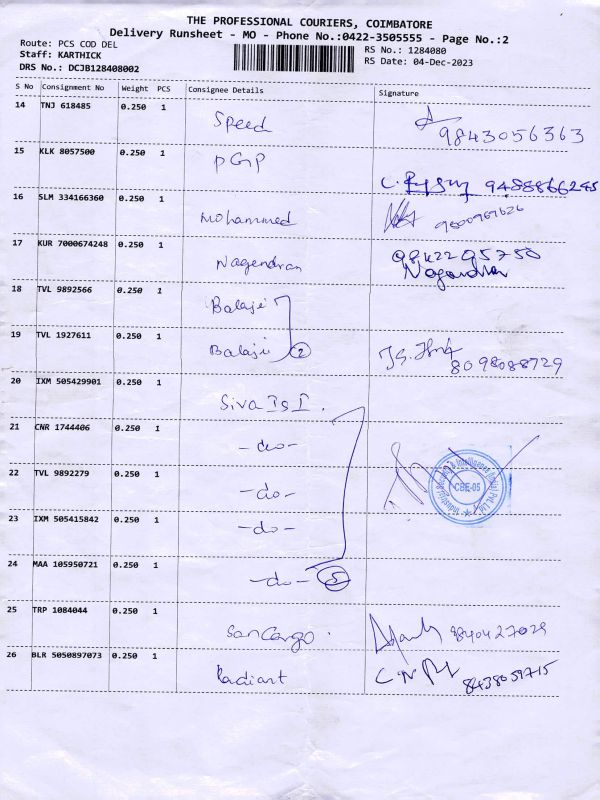 THE PROFESSIONAL COURIERS, COIMBATORE
Delivery Runsheet - MO - Phone No.:0422-3505555 - Page No.:2
Route: PCS COD DEL
Staff: KARTHICK
DRS No.: DCJB128408002
RS No.: 1284080
RS Date: 04-Dec-2023
S No Consignment No Weight PCS Consignee Details Signature
14 TNJ 618485 0.250 1 Speed 9843056363
15 KLK 8057500 0.250 1 PGP 9488866245
16 SLM 334166360 0.250 1 Mohammed
17 KUR 7000674248 0.250 1 Nagendran 9842295750
Nagendran
18 TVL 9892566 0.250 1 Balaji
19 TVL 1927611 0.250 1 Balaji 2 8098088729
20 IXM 505429901 0.250 1 Siva ISI.
21 CNR 1744406 0.250 1 -do-
22 TVL 9892279 0.250 1 -do-
CBE-05
23 IXM 505415842 0.250 1 -do-
24 MAA 105950721 0.250 1 -do- 5
25 TRP 1084044 0.250 1 San Cargo. 8840427029
26 BLR 5050897073 0.250 1 Radiant 8438059715